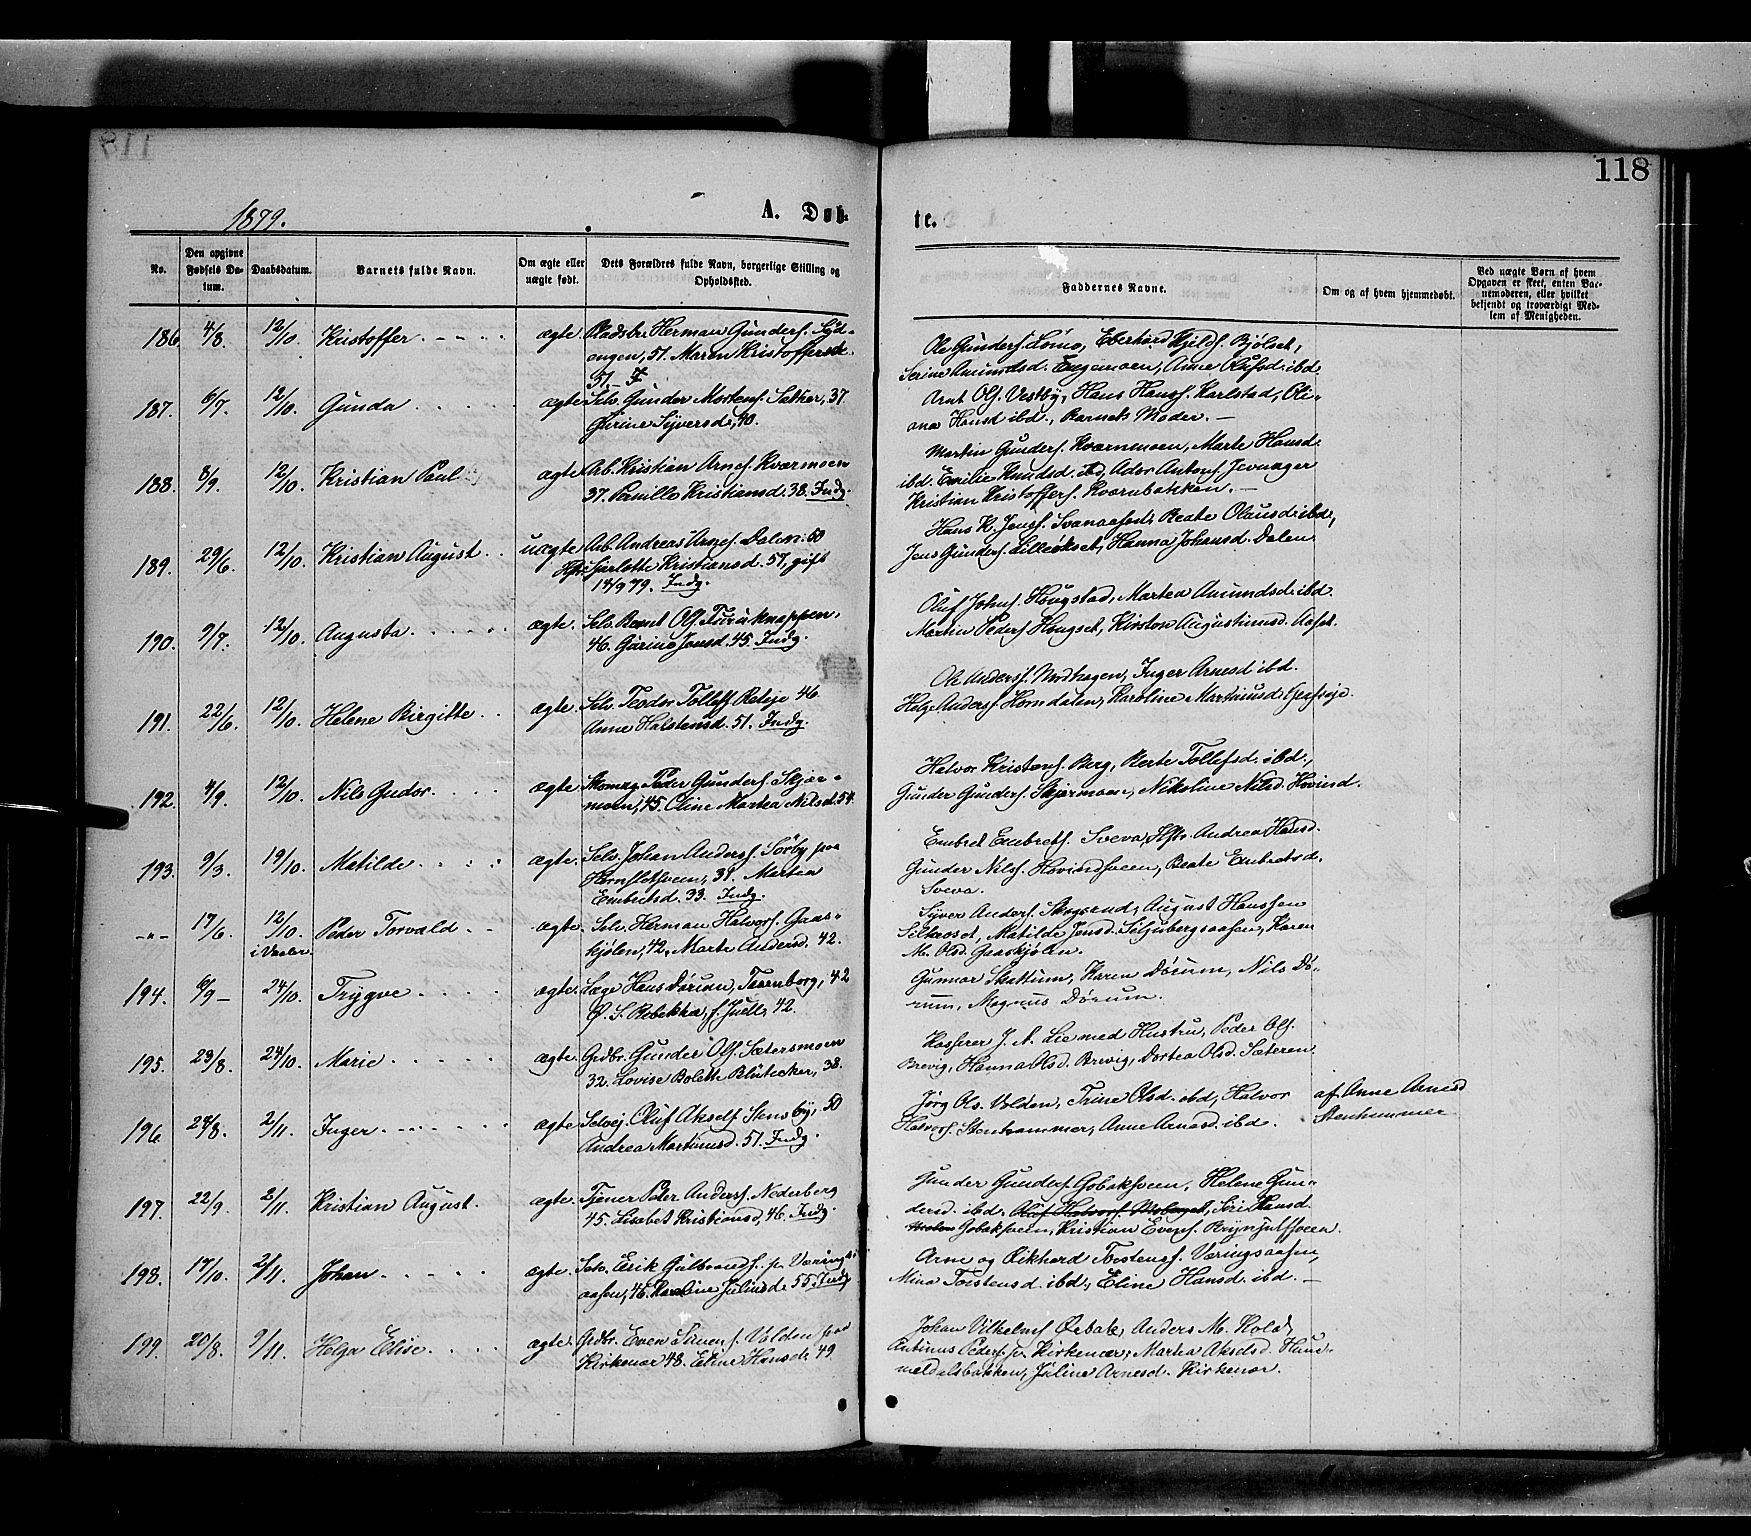 118
1879.
A. Døb-
te.
No.
Den opgivne Fødsels Da-tum.
Daabsdatum.
Barnets fulde Navn.
Om ægte eller uægte født.
Dets Forældres fulde Navn, borgerlige Stilling og Opholdssted.
Faddernes Navne.
Om og af hvem hjemmedøbt.
Ved uægte Børn af hvem Opgaven er skeet, enten Bar-nemoderen, eller hvilket bekjendt og troværdigt Med-lem af Menigheden.
186 4/8. 12/10. Kristoffer ægte Pladsbr. Herman Gunders.
51. Maren Kristoffersd.
51.
Ole Gunders. Lømo, Eberhard Kjelds. Bjølset,
Serine Amundsd. Engemoen, Anne Olufsd. ibd.
187. 6/7. 12/10. Gunda ægte Selv. Gunder Mortens. Sæther, 37
Syversd., 40.
Arnt Ols. Vestby, Hans Hanss. Karlstad, Oli-
ana Hansd ibd., Barnets Moder. —
188. 8/9. 12/10. Kristian Paul ægte Arb. Kristian Arnes. Kværmoen
37. Pernille Kristiansd. 38. Indg.
Martin Gunders. Kværnmoen, Marte Hansd.
ibd. Emilie Knudsd. ibd, Ador Antons.
Kristian Kristoffers. Kværnbakken. —
189. 29/6. 12/10. Kristian August uægte Arb. Andreas Arnes. Dalen. 50
Kristiansd. 57, gift
14/9 79. Indg.
Hans K. Jenss. Svenaasen, Beate Olausd. ibd,
Jens Gunders. Hanna Johansd. Dalen
190. 9/7. 12/10. Augusta ægte. Selv. Bernt Ols.
46. Gurine Jensd. 45. Indg.
Oluf Johns. Haugstad, Martea Amundsd. ibd
Martin Peders. Haugset, Kirsten Augustinusd. Aaset.
191. 22/6. 12/10. Helene Birgitte ægte. Selv. Teodor Tollefs. 46
Anne Halstensd. 51. Indg.
Ole Anderss. Nordhagen, Inger Arnesd ibd.
Helge Anderss. Horndalen, Karoline Martiniusd
192. 4/9. 12/10. Nils Gudor ægte Peder Gunders. Skjær-
moen, 45. Oline Martea Nilsd. 54.
Halvor Kristens. Berg, Berte Tollefsd. ibd.,
Gunder Gunders. Skjærmoen, Nikoline Nilsd. Hovind.
193. 9/3. 19/10. Matilde ægte. Selv. Johan Anderss. Sørby paa
31. Martea
Embretsd. 33. Indg.
Embret Embrets. Sveva, Hstr. Andrea Hansd.
Gunder Nilss. Hovindsveen, Beate Embretsd.
Sveva.
-"- 17/6. 12/10. i Vaaler. Peder Torvald ægte. Selv. Herman Halvors. Gaas-
kjølen, 42, Marte Andersd. 42.
Syver Anders. Skogsrud, August Hanssen
Matilde Jensd. Karen
M. Olsd. Gaaskjølen.
194. 6/9 — 24/10. Trygve ægte. Læge Hans Dørum, Toenborg, 42
Rebekka, f. Juell, 42.
Gunnar Skattum, Karen Dørum, Nils Dø-
rum, Magnus Dørum.
195. 23/8. 24/10. Marie ægte. Grdbr. Gunder Ols. Sætersmoen
32. Lovise Bolette Blütecker, 38.
Kasserer J. A. Lie med Hustru, Peder Ols.
Brevig, Hanna Olsd. Brevig, Dortea Olsd. Sæteren
196. 24/8. 2/11. Inger ægte Selvej. Oluf Aksels. Stensby, 50
Andrea Martinusd. 51. Indg.
Jørg Ols. Volden, Trine Olsd. ibd, Halvor
Halvors. Stenhammer, Anne Arnesd. ibd.
af Anne Arnesd
Stenhammer
197. 22/9. 2/11. Kristian August. ægte. Tjener Peter Anders. Nederberg
45. Lisabet Kristiansd, 46. Indg.
Gunder Gunders. Gobaksveen, Helene Gun-
dersd. ibd. Siri Hansd.
Gobaksveen, Kristian Evens. Brynjulfsveen
198. 17/10. 2/11. Johan ægte. Selv. Erik Gulbrands. p. Værings-
aasen, 46. Karoline Juliusd. 55. Indg
Arne og Rikhard Torstenss. Væringsaasen,
Mina Torstensd. ibd., Eline Hansd. ibd. —
199. 20/8. 9/11. Helga Elise ægte. Grdbr. Even Simens. Volden paa
Kirkenær 48. Eline Hansd. 49.
Johan Vilhelms. Anders M. Kold,
Antinus Peders. p. Kirkenær, Martea Akselsd. Hum-
meldalsbakken, Juline Arnesd. Kirkenær.